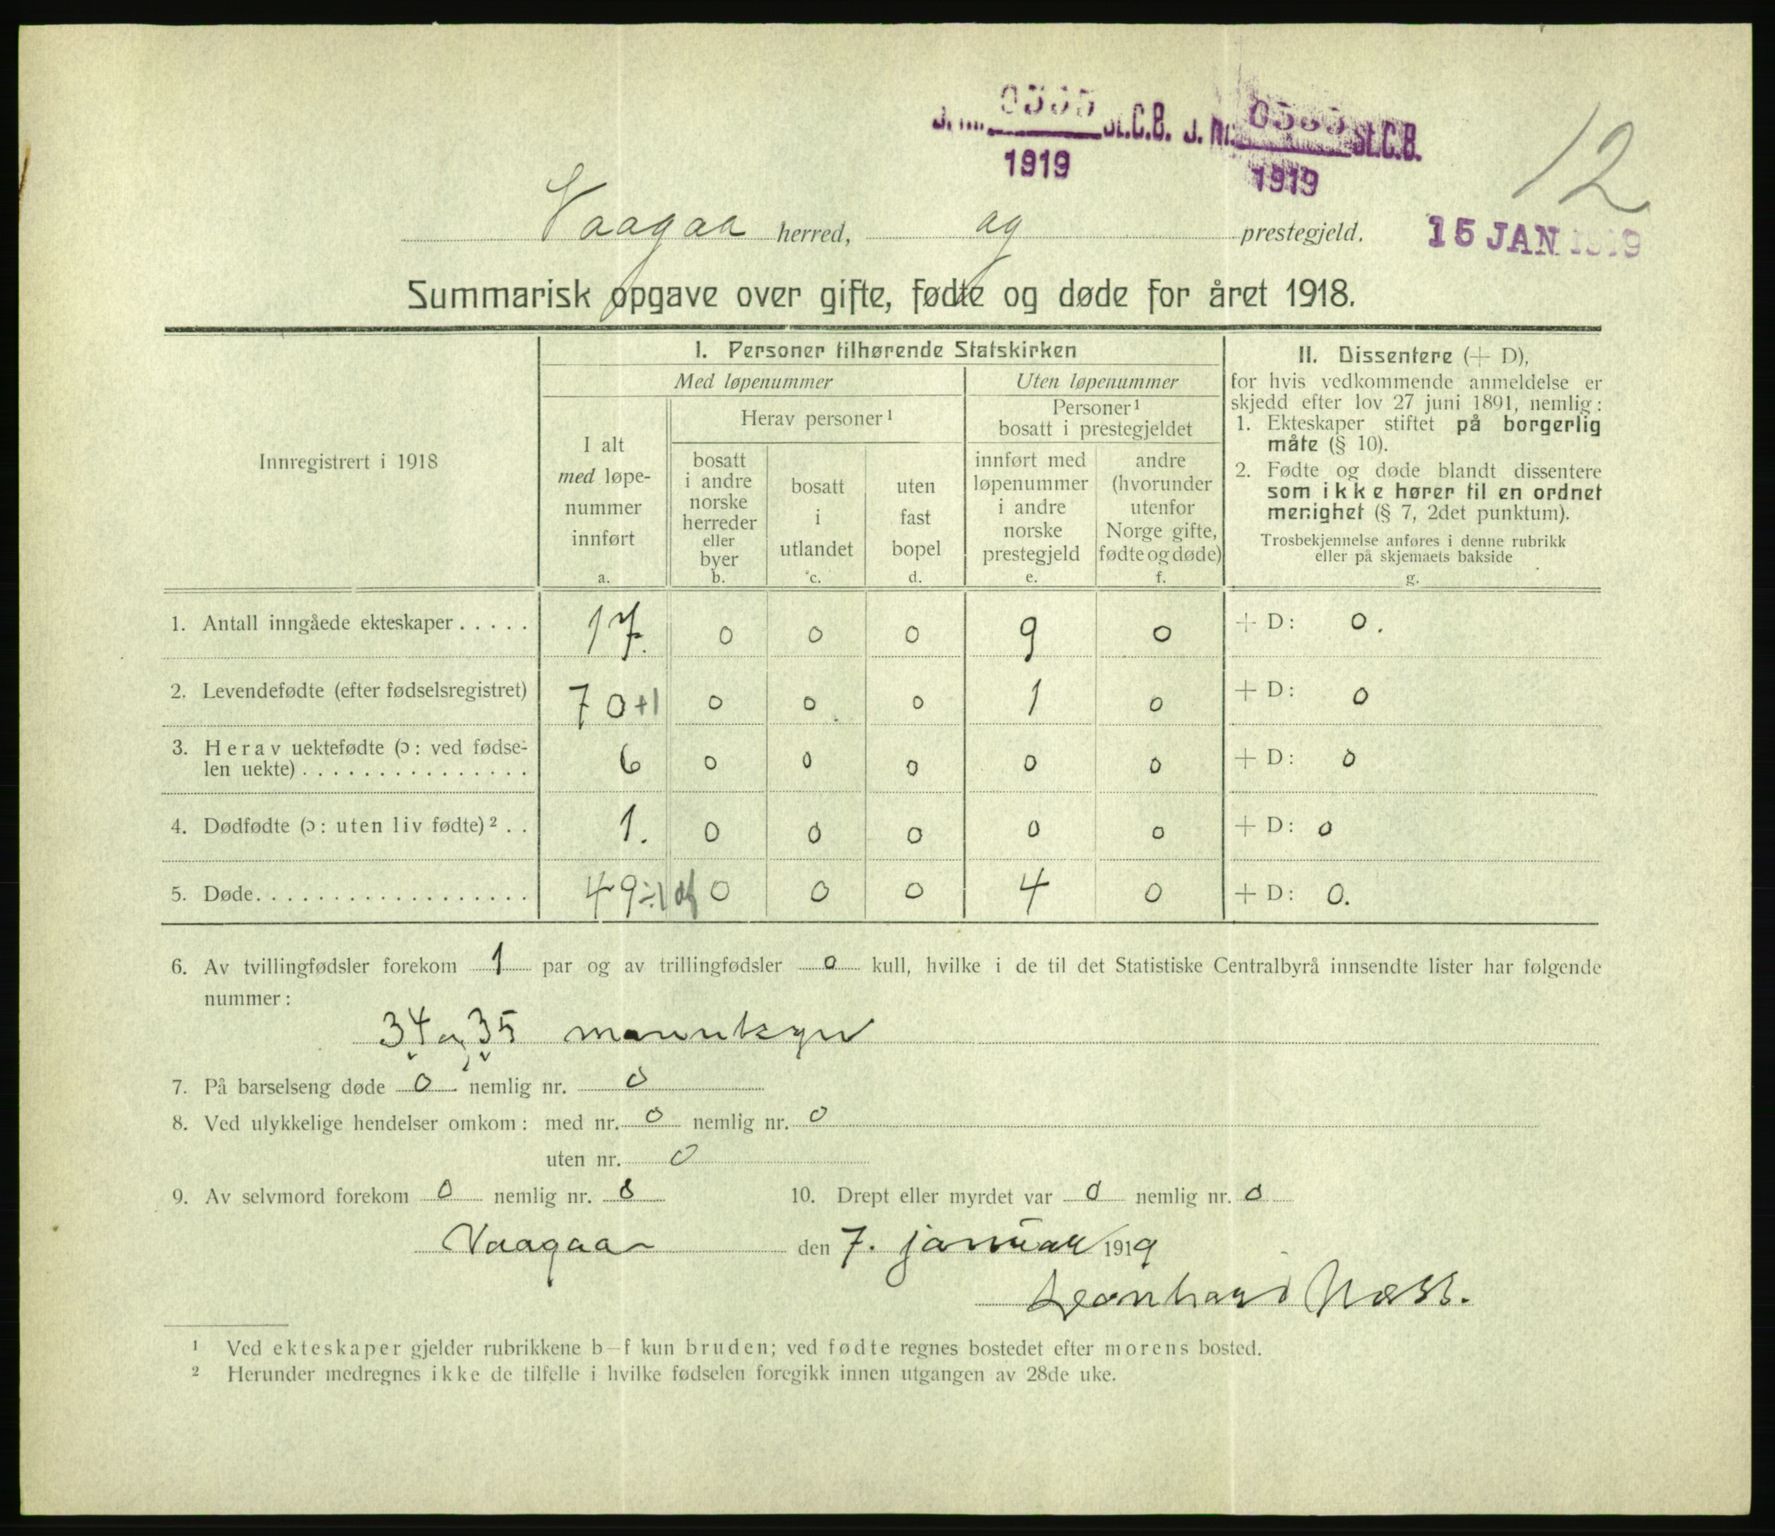 0565 St.C.B. J. Nr. 0565 St.C.B.
1919 1919
12
Vaagaa herred, og prestegjeld. 15 JAN 1919
Summarisk opgave over gifte, fødte og døde for året 1918.
Innregistrert i 1918
I. Personer tilhørende Statskirken
Med løpenummer
Uten løpenummer
I alt
med løpe-
nummer
innført
a.
Herav personer ¹
bosatt
i andre
norske
herreder
eller
byer
b.
bosatt
i
utlandet
c.
uten
fast
bopel
d.
Personer ¹
bosatt i prestegjeldet
innført med
løpenummer
i andre
norske
prestegjeld
e.
andre
(hvorunder
utenfor
Norge gifte,
fødte og døde)
f.
II. Dissentere (+ D),
for hvis vedkommende anmeldelse er
skjedd efter lov 27 juni 1891, nemlig:
1. Ekteskaper stiftet på borgerlig
måte (§ 10).
2. Fødte og døde blandt dissentere
som ikke hører til en ordnet
menighet (§ 7, 2det punktum).
Trosbekjennelse anføres i denne rubrikk
eller på skjemaets bakside
g.
1. Antall inngåede ekteskaper ..... 17. 0 0 0 9 0 + D: 0.
2. Levendefødte (efter fødselsregistret) 70 +1 0 0 0 1 0 + D: 0
3. Herav uektefødte (ɔ: ved fødse-
len uekte) ............... 6 0 0 0 0 0 + D: 0
4. Dødfødte (ɔ: uten liv fødte) ² . . 1. 0 0 0 0 0 + D: 0
5. Døde. ................. 49 ÷1 df 0 0 0 4 0 + D: 0.
6. Av tvillingfødsler forekom 1 par og av trillingfødsler 0 kull, hvilke i de til det Statistiske Centralbyrå innsendte lister har følgende
nummer:
34 og 35 mannkyn
7. På barselseng døde 0 nemlig nr. 0
8. Ved ulykkelige hendelser omkom: med nr. 0 nemlig nr. 0
uten nr. 0
9. Av selvmord forekom 0 nemlig nr. 0 10. Drept eller myrdet var 0 nemlig nr. 0
Vaagaa den 7. januar 1919
Leonhard Næss.
¹ Ved ekteskaper gjelder rubrikkene b—f kun bruden; ved fødte regnes bostedet efter morens bosted.
² Herunder medregnes ikke de tilfelle i hvilke fødselen foregikk innen utgangen av 28de uke.